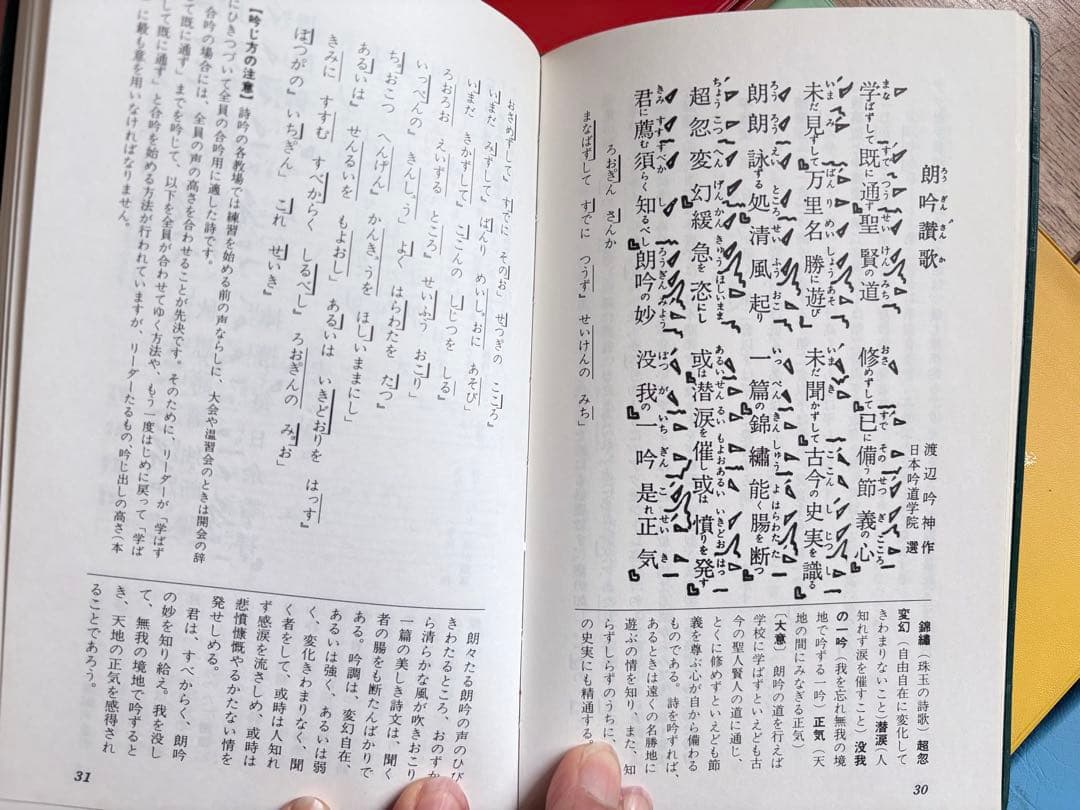 朗吟讃歌
ろうぎんさんか
渡辺吟神 作
日本吟道学院 選
学ばずして既に通ず聖賢の道 修めずして已に備う節義の心
未だ見ずして万里名勝に遊び 未だ聞かずして古今の史実を識る
朗朗詠ずる処清風起り 一篇の錦繡能く腸を断つ
超忽変幻緩急を恣にし 或は潜涙を催し或は憤りを発す
君に薦む須らく知るべし朗吟の妙 没我の一吟是れ正気
ろおぎん さんか
まなばずして すでに つうず』 せいけんの みち』
錦繡(珠玉の詩歌) 超忽
変幻(自由自在に変化して
きわまりないこと)潜涙(人
知れず涙を催すこと) 没我
の一吟(我を忘れ無我の境
地で吟ずる一吟)正気(天
地の間にみなぎる正気)
〔大意〕 朗吟の道を行えば
学校に学ばずといえども古
今の聖人賢人の道に通じ、
とくに修めずといえども節
義を尊ぶ心が自から備わる
ものである。詩を吟ずれば、
あるときは遠くの名勝地に
遊ぶの情を知り、また、知
らずしらずのうちに、古今
の史実にも精通する。
30
おさめずして』 すでに そのお』 せつぎの こころ』
いまだ みずして』 ばんり めいしょおに あそび』
いまだ きかずして』 ここんの しじつを しる』
ろおろお えいずる ところ』 せいふう おこり』
いっぺんの』 きんしゅう』 よく はらわたを たつ』
ちょおこつ へんげん』 かんきゅうを ほしいままにし』
あるいは』 せんるいを もよおし』 あるいは いきどおりを はっす』
きみに すすむ すべからく しるべし』 ろおぎんの みょお』
ぼつがの』 いちぎん』 これ せいき』
【吟じ方の注意】 詩吟の各教場では練習を始める前の声ならしに、大会や温習会のときは開会の辞
にひきつづいて全員の合吟用に適した詩です。
合吟の場合には、全員の声の高さを合わせることが先決です。そのために、リーダーが「学ばず
して既に通ず」までを吟じて、以下を全員が合わせてゆく方法や、もう一度はじめに戻って「学ば
して既に通ず」と合吟を始める方法が行われていますが、リーダーたるもの、吟じ出しの高さ(本
に最も意を用いなければなりません。
朗々たる朗吟の声のひび
きわたるところ、おのずか
ら清らかな風が吹きおこり
一篇の美しき詩文は、聞く
者の腸をも断たんばかりで
ある。吟調は、変幻自在、
あるいは強く、あるいは弱
く、変化きわまりなく、聞
く者をして、或時は人知れ
ず感涙を流さしめ、或時は
悲憤慷慨やるかたない情を
発せしめる。
君は、すべからく、朗吟
の妙を知り給え。我を没し
て、無我の境地で吟ずると
き、天地の正気を感得され
ることであろう。
31